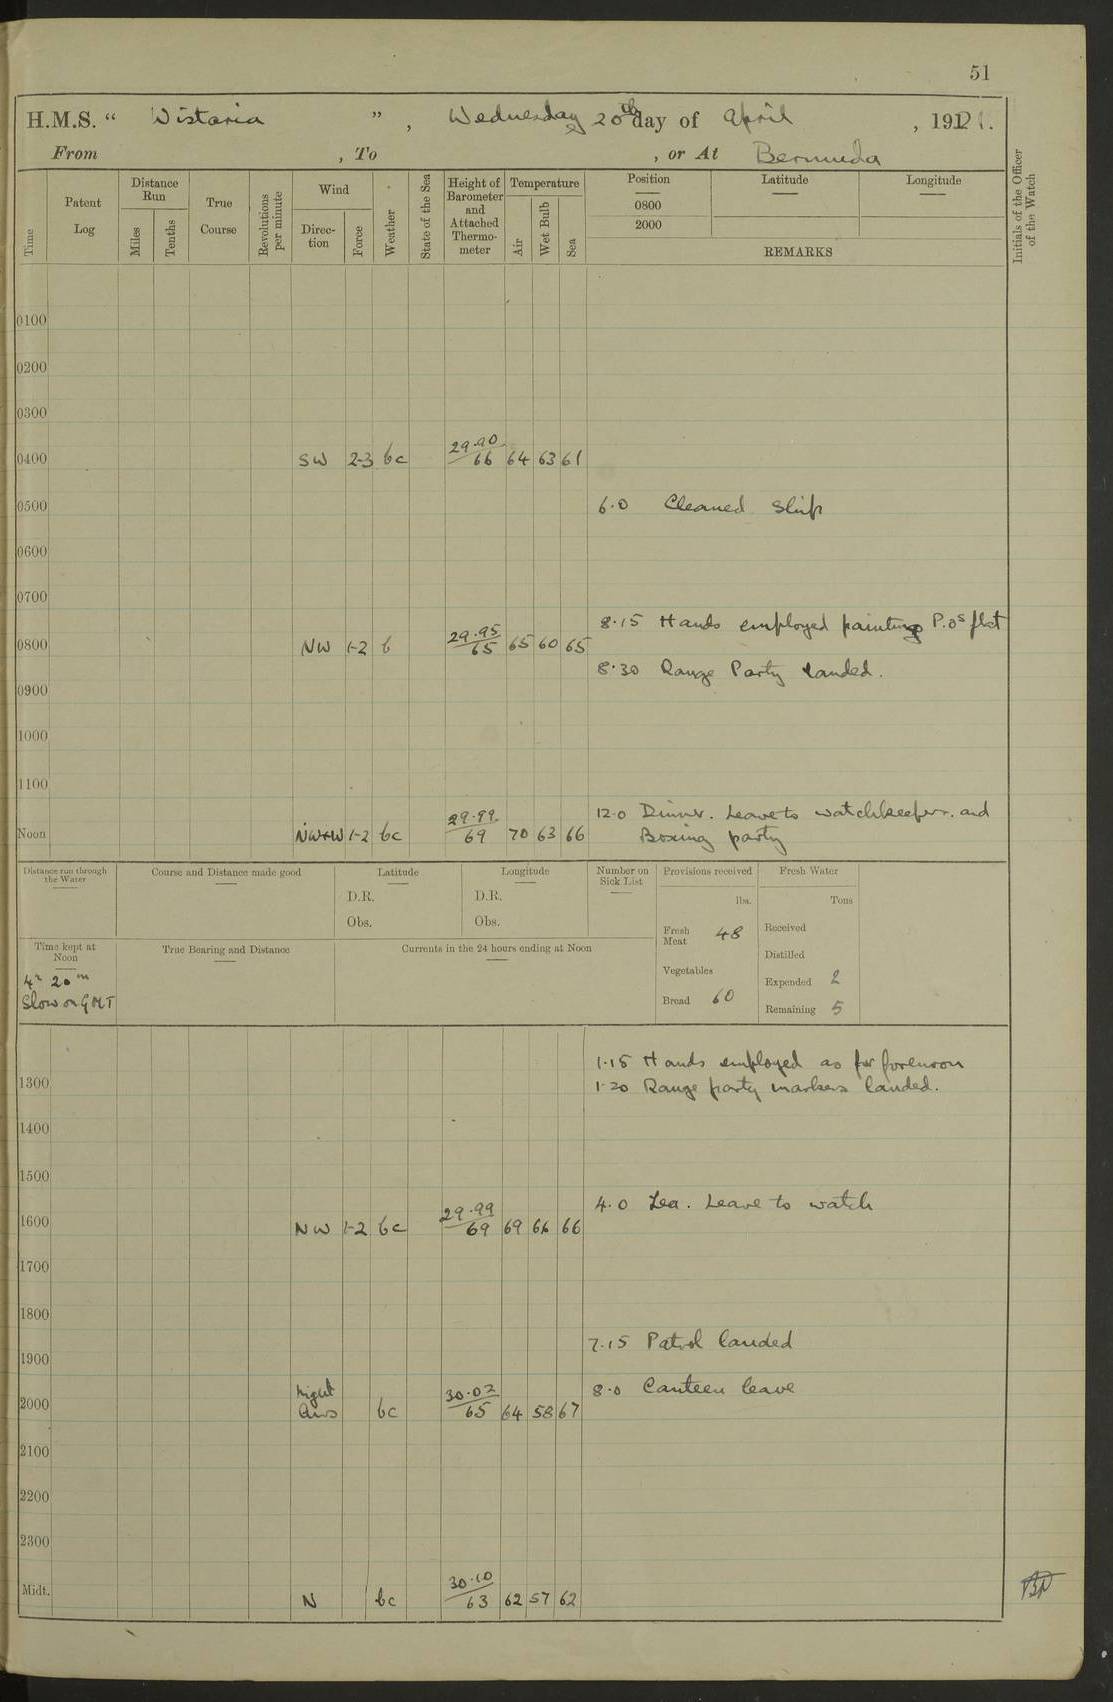 51
H.M.S. “ Wistaria ” , Wednesday 20th day of April , 1921.
From , To , or At Bermuda
Time
Patent Log
Distance Run
Miles
Tenths
True Course
Revolutions per minute
Wind
Direc-tion
Force
Weather
State of the Sea
Height of Barometer and Attached Thermo-meter
Temperature
Air
Wet Bulb
Sea
Position
0800
2000
Latitude
Longitude
REMARKS
Initials of the Officer of the Watch
0100
0200
0300
0400 SW 2-3 bc 29.90 66 64 63 61
0500 6.0 Cleaned ship
0600
0700
8.15 Hands employed painting P.Os flat
0800 NW 1-2 b 29.95 65 65 60 65
8.30 Range Party landed.
0900
1000
1100
12.0 Dinner. Leave to watchkeepers. and
Noon NW+W 1-2 bc 29.99 69 70 63 66 Boxing party
Distance run through the Water
Course and Distance made good
Latitude
D.R.
Obs.
Longitude
D.R.
Obs.
Number on Sick List
Provisions received
lbs.
Fresh Meat 48
Vegetables
Bread 60
Fresh Water
Tons
Received
Distilled
Expended 2
Remaining 5
Time kept at Noon
4h 20m
Slow on GMT
True Bearing and Distance
Currents in the 24 hours ending at Noon
1.15 Hands employed as for forenoon
1300 1.20 Range party markers landed.
1400
1500
4.0 Tea. Leave to watch
1600 NW 1-2 bc 29.99 69 69 66 66
1700
1800
7.15 Patrol landed
1900
8.0 Canteen leave
2000 Light airs bc 30.02 65 64 58 67
2100
2200
2300
Midt. N bc 30.10 63 62 57 62